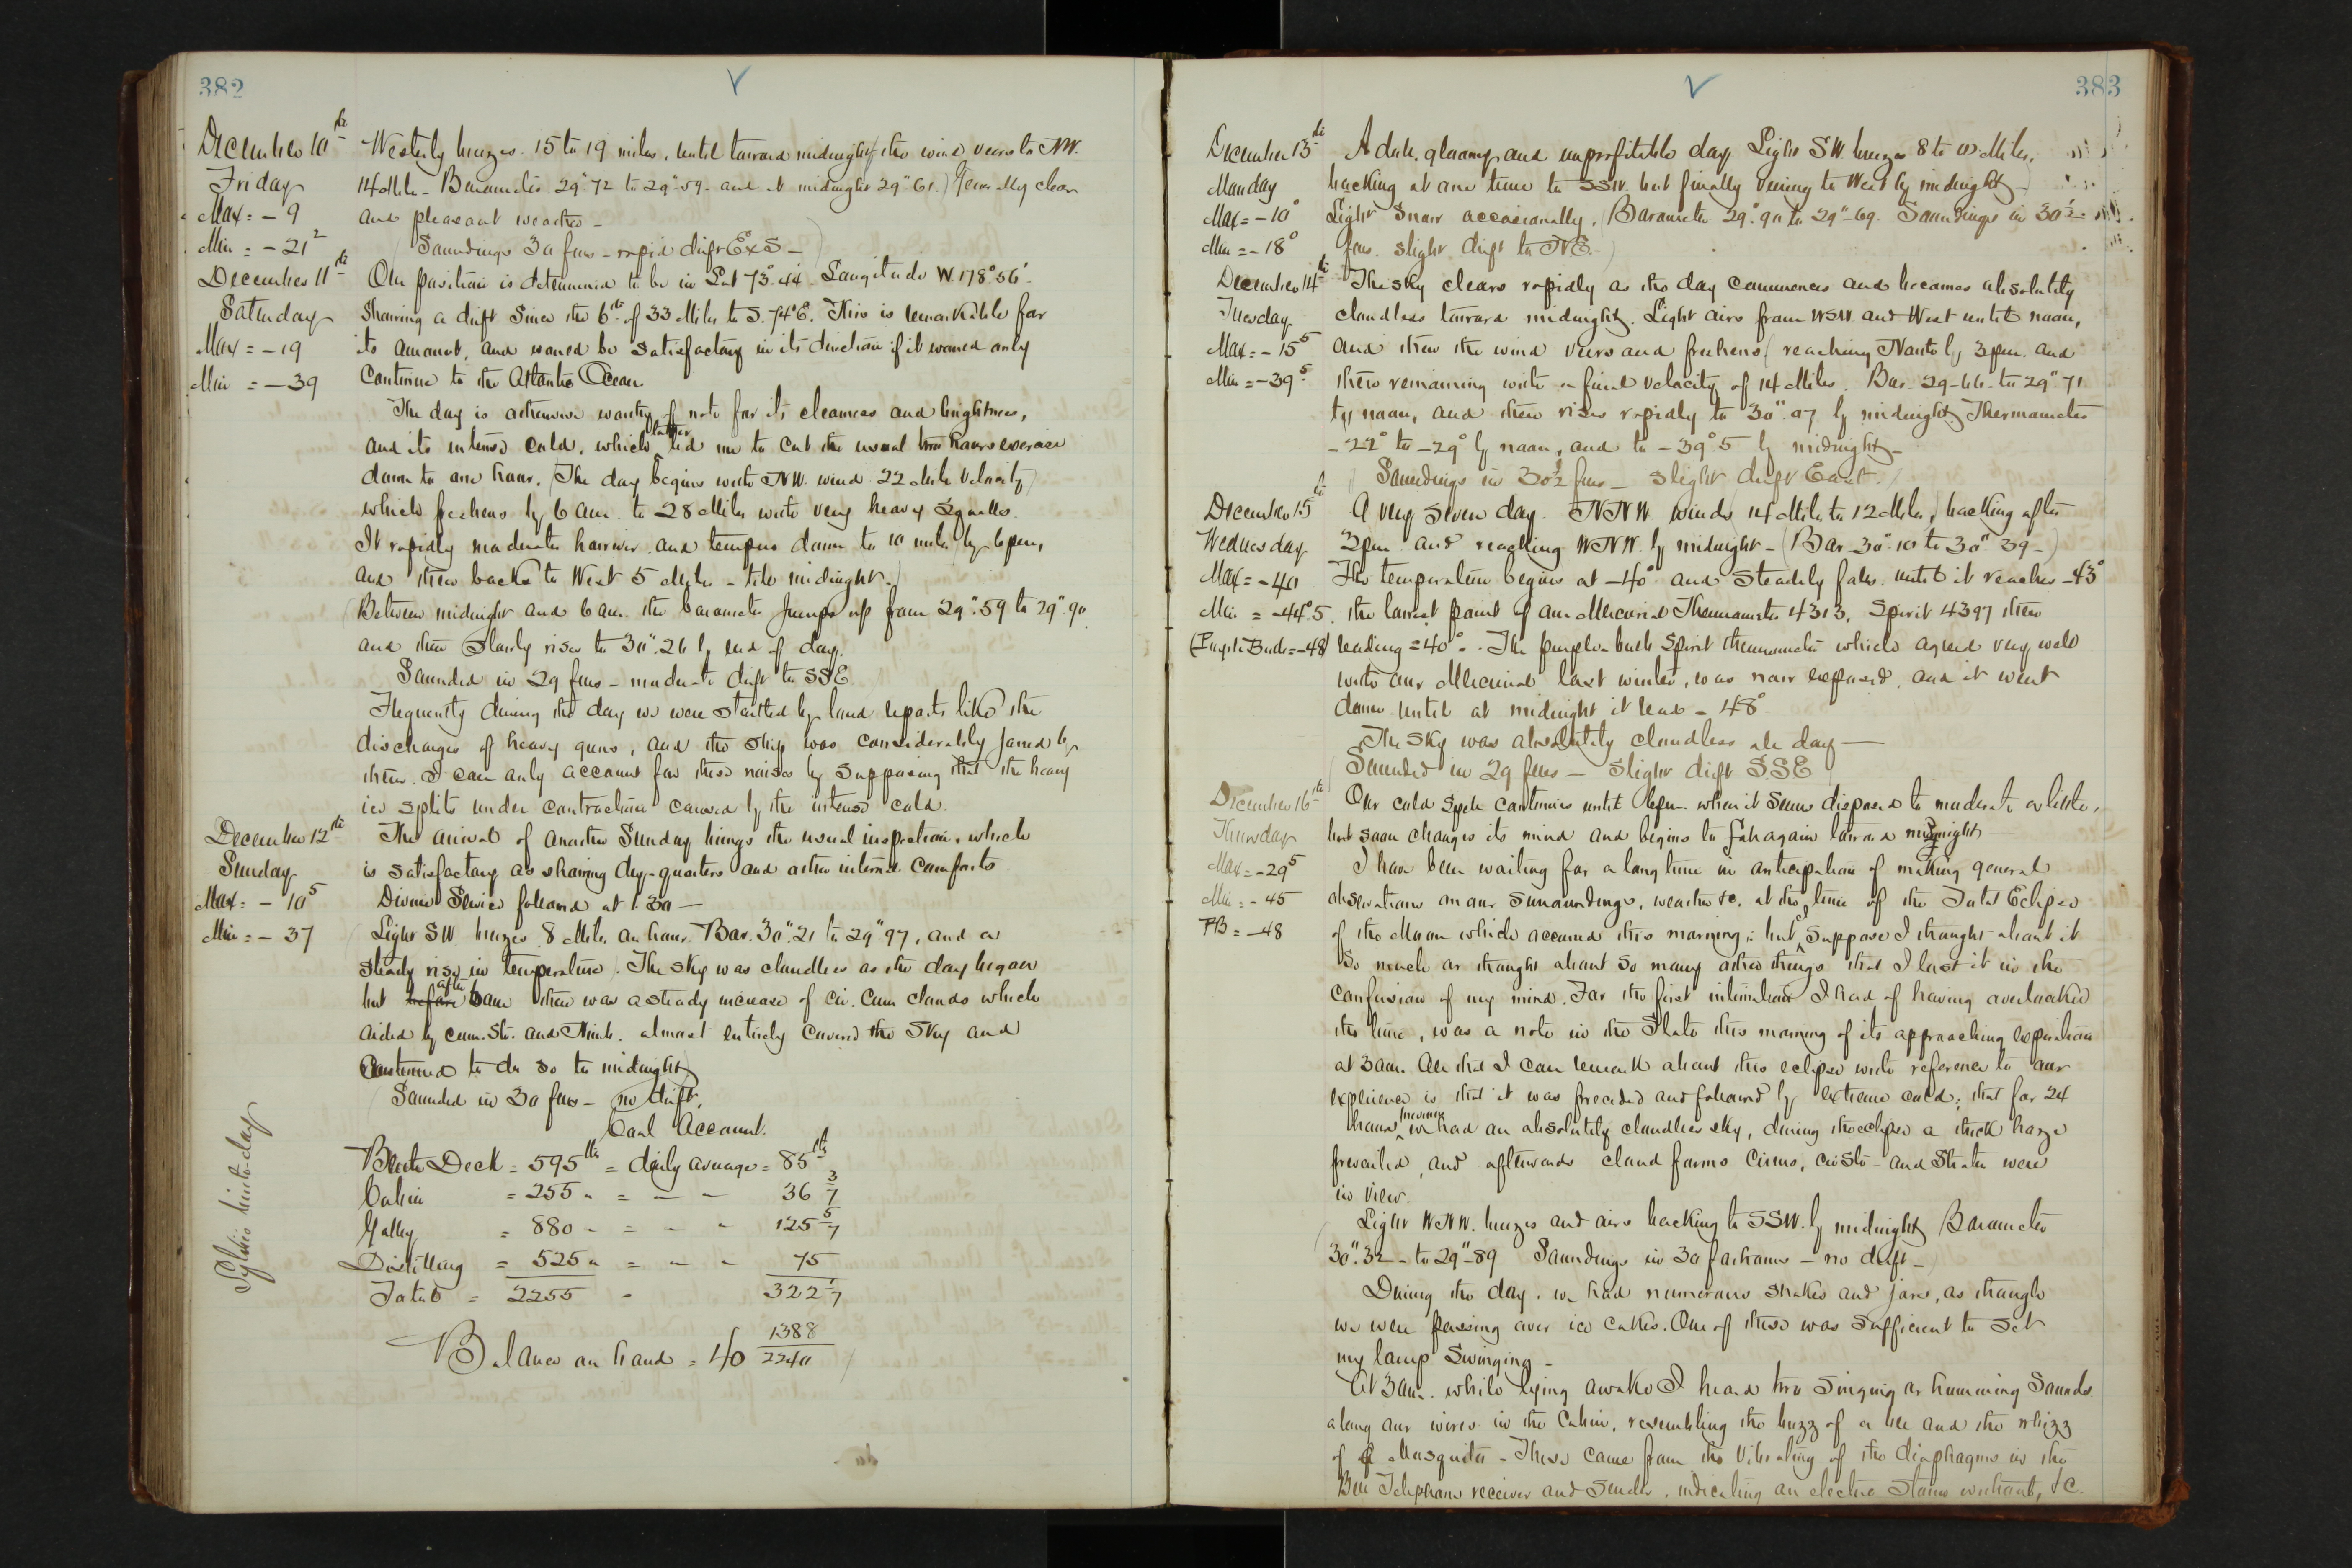 382
December 10th
Friday
Max = - 9
Min = - 21²
Westerly breezes 15 to 19 miles, until toward midnight the wind veers to NW.
14 Miles - Barometer 29".72 to 29".59 - and at midnight 29".61.) Generally clear
and pleasant weather -
(Soundings 30 fms - rapid drift ExS -)
December 11th
Saturday
Max = - 19
Min = - 39
Our position is determined to be in Lat 73°.44' - Longitude W 178°.56'.
Showing a drift since the 6th of 33 Miles to S. 74°E. This is remarkable for
its amount, and would be satisfactory in its direction if it would only
continue to the Atlantic Ocean
The day is otherwise worthy of note for its clearness and brightness,
and its intense cold, which latter led me to cut the usual two hours exercise
down to one hour. (The day begins with NW. wind 22 Mile Velocity
which freshens by 6 am. to 28 Miles with very heavy Squalls.
It rapidly moderates however and tempers down to 10 miles by 6 pm,
and then backs to West 5 Miles - till midnight.)
(Between midnight and 6 am. the barometer jumps up from 29".59 to 29".90
and then slowly rises to 30".26 by end of day.
Sounded in 29 fms - moderate drift to SSE
Frequently during the day we were startled by loud reports like the
discharges of heavy guns, and the ship was considerably jarred by
them. I can only account for these noises by supposing that the heavy
ice splits under contraction caused by the intense cold.
December 12th
Sunday
Max = - 10⁵
Min = - 37
The arrival of another Sunday brings the usual inspection, which
is satisfactory as showing dry-quarters and other internal comforts
Divine Service followed at 1.30 -
(Light SW. breezes 8 Miles an hour. Bar. 30".21 to 29".97, and a
steady rise in temperature). The sky was cloudless as the day began
but before after 6 am there was a steady increase of Cir. Cum clouds which
aided by Cum. Str. and Nimb. almost entirely covered the sky and
Continued to do so to midnight
(Sounded in 30 fms - no drift.
Coal Account.
Berth Deck = 595 lbs = daily average = 85 lbs
Cabin = 255 " = - - 36 3/7
Galley = 880 - = - - 125 5/7
Distilling = 525 " = - - 75
Total = 2255 - 322 1/7
Balance on hand = 40 1388/2240
Sylvie's birth-day
383
December 13th
Monday
Max = - 10°
Min = - 18°
A dark, gloomy and unprofitable day. Light SW. breezes 8 to 10 Miles,
backing at one time to SSW. but finally veering to West by midnight -
Light Snow occasionally. (Barometer 29".90 to 29".69. Soundings in 30½
fms. slight drift to NE.)
December 14th
Tuesday
Max = - 15⁵
Min = - 39⁵
The sky clears rapidly as the day commences and becomes absolutely
cloudless toward midnight. Light airs from WSW. and West until noon,
and then the wind veers and freshens, reaching North by 3 pm. and
there remaining with a final velocity of 14 Miles. Bar. 29-66 to 29".71
by noon, and then rises rapidly to 30".07 by midnight. Thermometer
- 22° to -29° by noon, and to -39°5 by midnight -
(Soundings in 30½ fms - slight drift East.)
December 15th
Wednesday
Max = - 40
Min = - 44°.5
(Purple Bulb = -48)
A very severe day. NNW. winds 14 Miles to 12 Miles, backing after
3 pm. and reaching WNW. by midnight - (Bar. 30".10 to 30".39 -)
The temperature begins at -40° and steadily falls until it reaches -43°
the lowest point of our Mercurial Thermometer 4313, Spirit 4397 then
reading = 40°. The purple-bulb Spirit thermometer which agreed very well
with our Mercurial last winter, was now exposed, and it went
down until at midnight it read - 48°
The sky was absolutely cloudless all day -
(Sounded in 29 fms - slight drift SSE
December 16th
Thursday
Max = - 29⁵
Min = - 45
PB = - 48
Our cold spell continues until 6 pm. when it seems disposed to moderate a little,
but soon changes its mind and begins to fall again toward midnight
I have been waiting for a long time in anticipation of making general
observations on our surroundings, weather &c. at the time of the Total Eclipse
of the Moon which occurred this morning; but I suppose I thought about it
so much or thought about so many other things that I lost it in the
confusion of my mind. For the first intimation I had of having overlooked
the time, was a note in the Slate this morning of its approaching expiration
at 3 am. All that I can remark about this eclipse with reference to our
experience is that it was preceded and followed by extreme cold; that for 24
hours previous we had an absolutely cloudless sky, during the eclipse a thick haze
prevailed, and afterwards cloud forms Cirrus, Cir Str - and Stratus were
in view.
(Light WNW. breezes and airs backing to SSW. by midnight Barometer
30".32 - to 29"-89 Soundings in 30 fathoms - no drift -
During the day, we had numerous shakes and jars, as though
we were passing over ice cakes. One of these was sufficient to set
my lamp swinging -
At 3 am. while lying awake I heard two singing or humming sounds
along our wires in the Cabin, resembling the buzz of a bee and the whizz
of a Mosquito - These came from the vibrating of the diaphragms in the
Bell Telephone receiver and sender, indicating an electric storm without, &c.